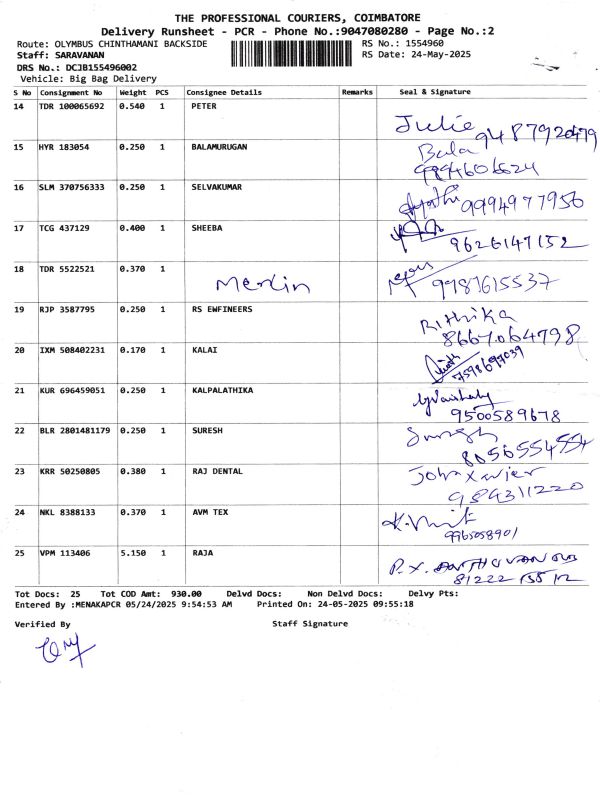 THE PROFESSIONAL COURIERS, COIMBATORE
Delivery Runsheet - PCR - Phone No.:9047080280 - Page No.:2
Route: OLYMBUS CHINTHAMANI BACKSIDE RS No.: 1554960
Staff: SARAVANAN RS Date: 24-May-2025
DRS No.: DCJB155496002
Vehicle: Big Bag Delivery
S No Consignment No Weight PCS Consignee Details Remarks Seal & Signature
14 TDR 100065692 0.540 1 PETER
Julie 9487920479
15 HYR 183054 0.250 1 BALAMURUGAN
Bala
9894606624
16 SLM 370756333 0.250 1 SELVAKUMAR
9994977956
17 TCG 437129 0.400 1 SHEEBA
9626147152
18 TDR 5522521 0.370 1
Merlin 9981615537
19 RJP 3587795 0.250 1 RS EWFINEERS
Rithika
8667064798
20 IXM 508402231 0.170 1 KALAI
7598697039
21 KUR 696459051 0.250 1 KALPALATHIKA
9500589678
22 BLR 2801481179 0.250 1 SURESH
8056554554
23 KRR 50250805 0.380 1 RAJ DENTAL
John xavier
9894311220
24 NKL 8388133 0.370 1 AVM TEX
9965058901
25 VPM 113406 5.150 1 RAJA
P.X.
81222
Tot Docs: 25 Tot COD Amt: 930.00 Delvd Docs: Non Delvd Docs: Delvy Pts:
Entered By :MENAKAPCR 05/24/2025 9:54:53 AM Printed On: 24-05-2025 09:55:18
Verified By Staff Signature